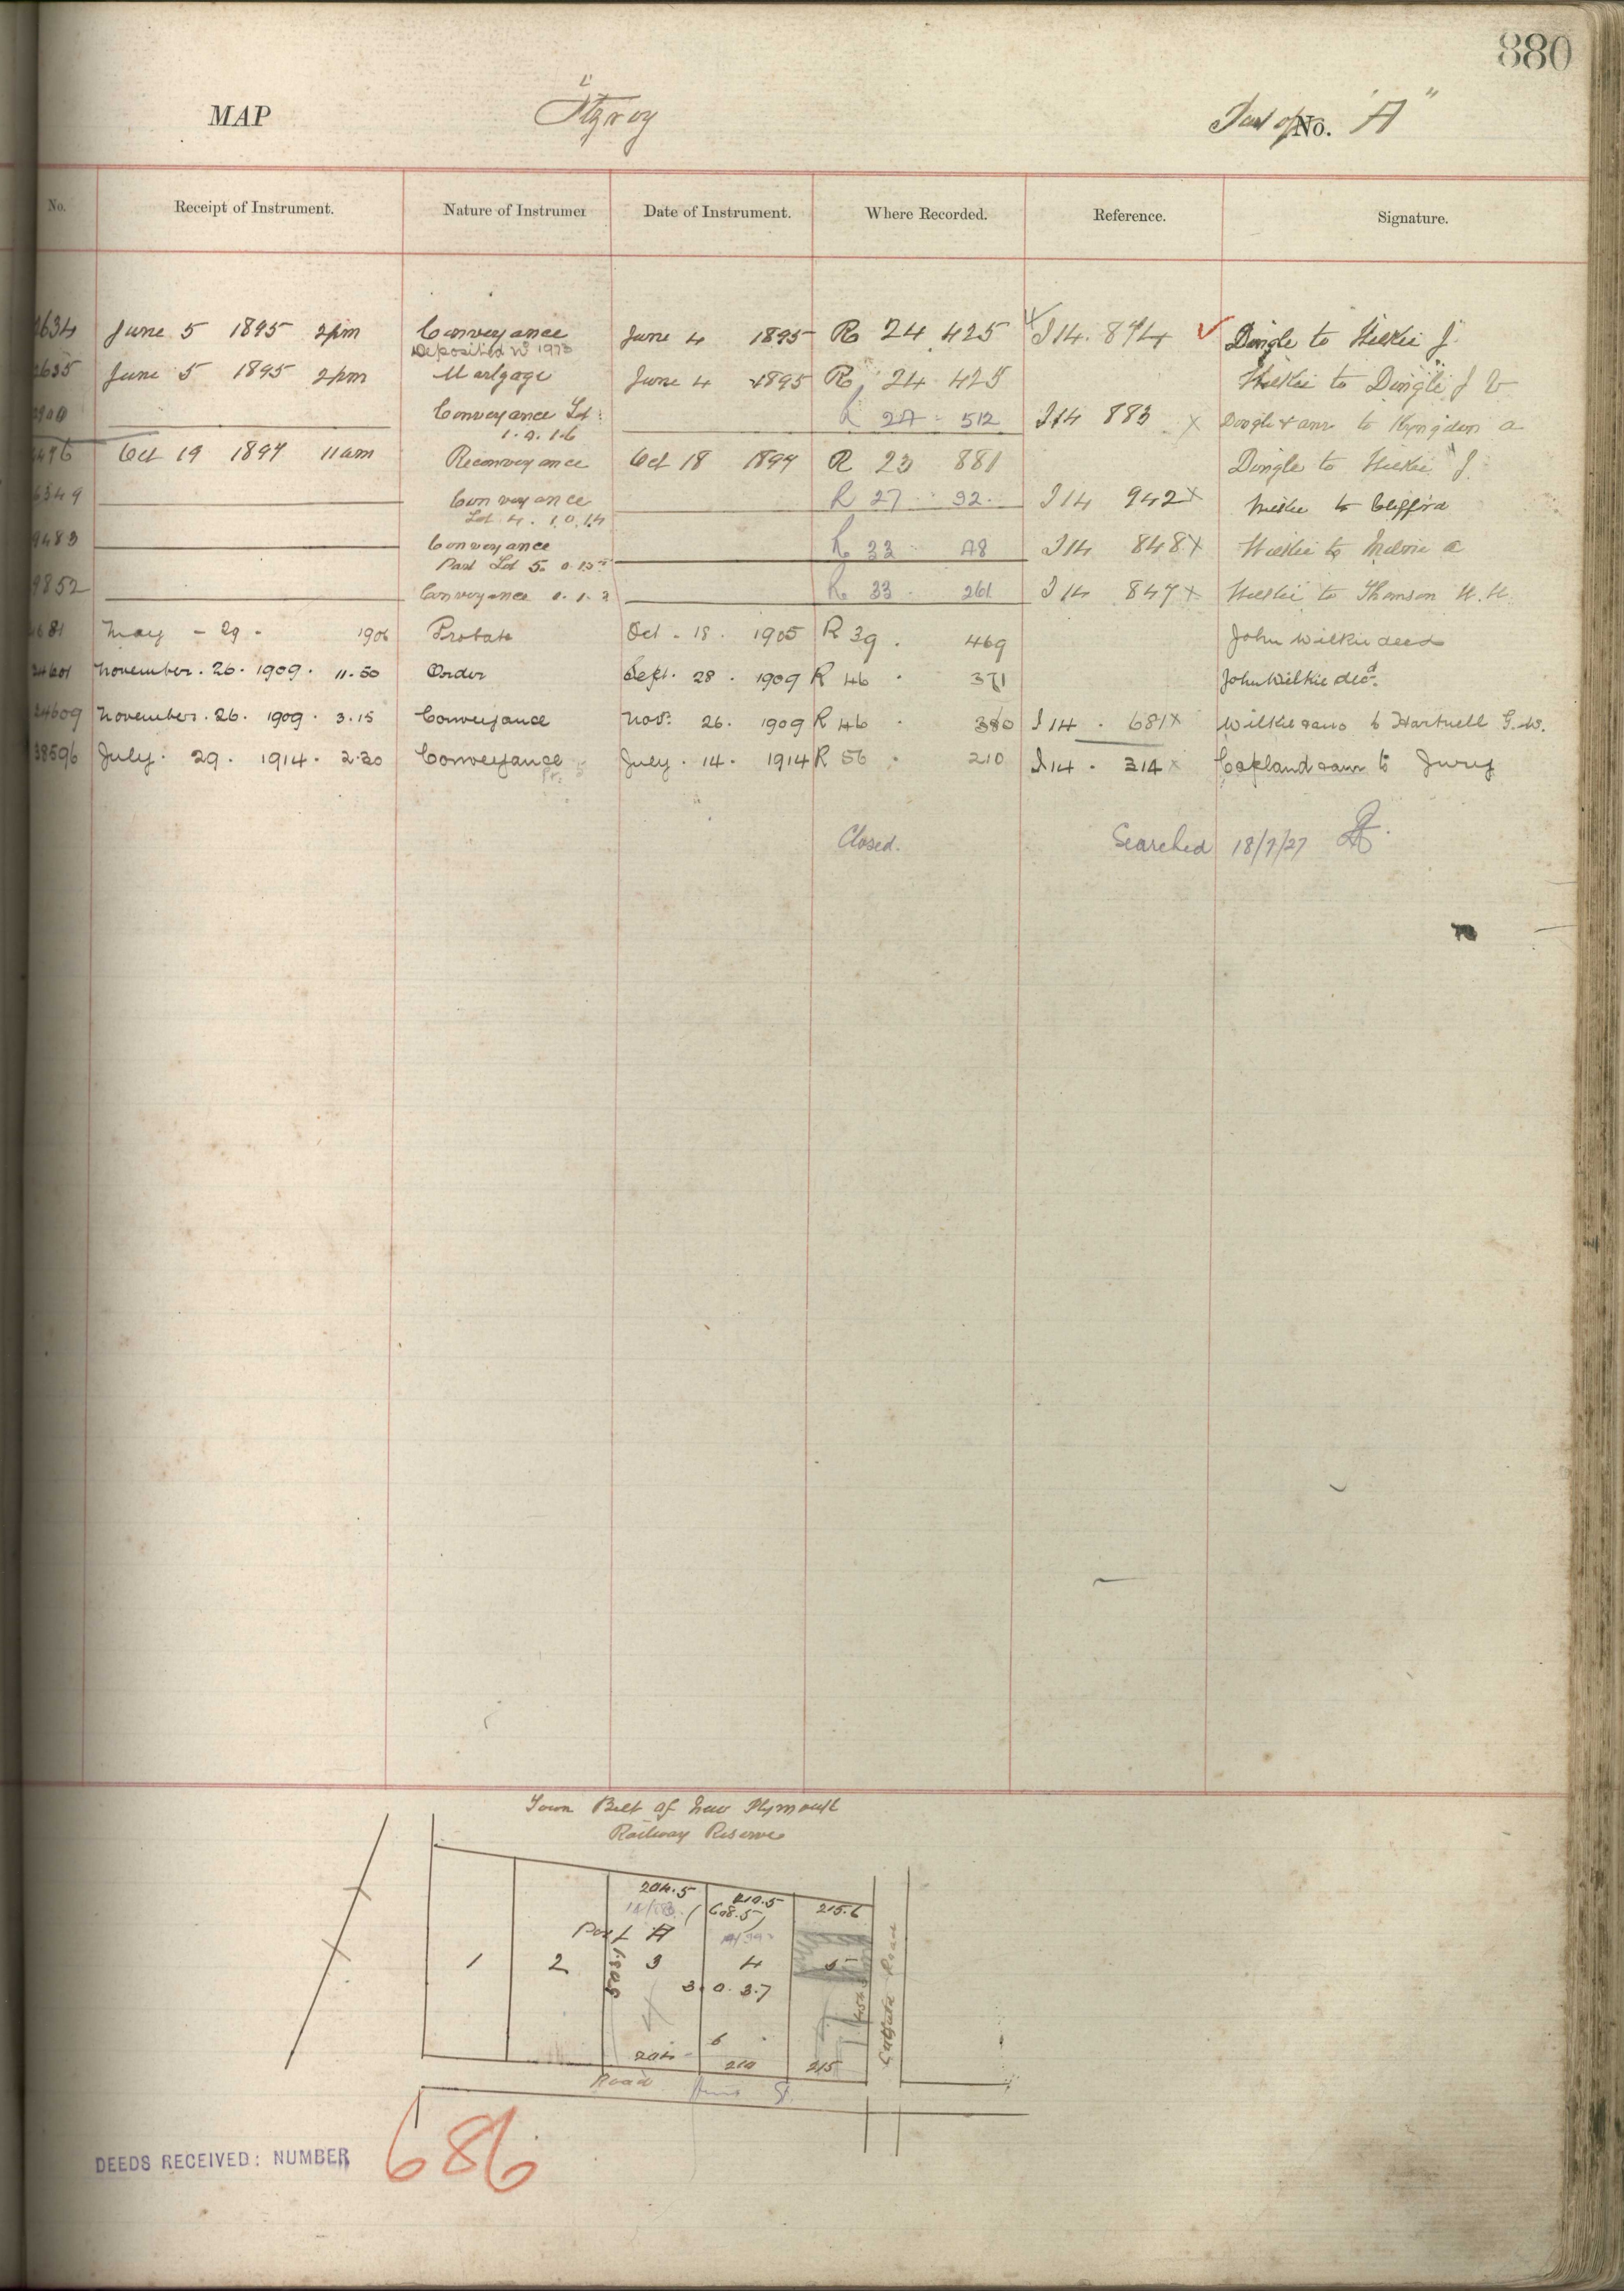 880
MAP Fitzroy Part of No. "A"
No. Receipt of Instrument. Nature of Instrumen Date of Instrument. Where Recorded. Reference. Signature.
634 June 5 1895 2pm Conveyance June 4 1895 R 24 425 I 14. 874 Dingle to Wilkie J.
Deposited No 1973
635 June 5 1895 2pm Mortgage June 4 1895 R 24 425 Wilkie to Dingle J V
Conveyance Lot R 27 512 I 14 883 x Dingle & anr to Kyngdon a
1. 0. 16
496 Oct 19 1897 11am Reconveyance Oct 18 1897 R 23 881 Dingle to Wilkie J.
6349 Conveyance R 27 92 I 14 942 x Wilkie to
Lot 4. 1. 0. 14
9483 Conveyance R 33 48 I 14 848 x Wilkie to a
Part Lot 5. 0.
9852 Conveyance 0. 1. 2 R 33 261 I 14 847 x Wilkie to Thomson
681 May - 29 - 1906 Probate Oct - 18 . 1905 R 39 . 469 John Wilkie decd
24601 November . 26 . 1909 . 11.50 Order Sept. 28 . 1909 R 46 . 371 John Wilkie decd.
24609 November . 26 . 1909 . 3.15 Conveyance Nov. 26 . 1909 R 46 . 380 I 14 . 681 x Wilkie & ano to Hartnell G.W.
38596 July . 29 . 1914 . 2.20 Conveyance July . 14 . 1914 R 56 . 210 I 14 . 314 x Copland & anr to Jury
Closed. Searched 18/7/27
Town Belt of New Plymouth
Railway Reserve
204.5 210.5 215.6
(608.5)
Part A
1 2 3 4 5
3. 0. 37
204 6 210 215
Road St.
Road
DEEDS RECEIVED: NUMBER 686